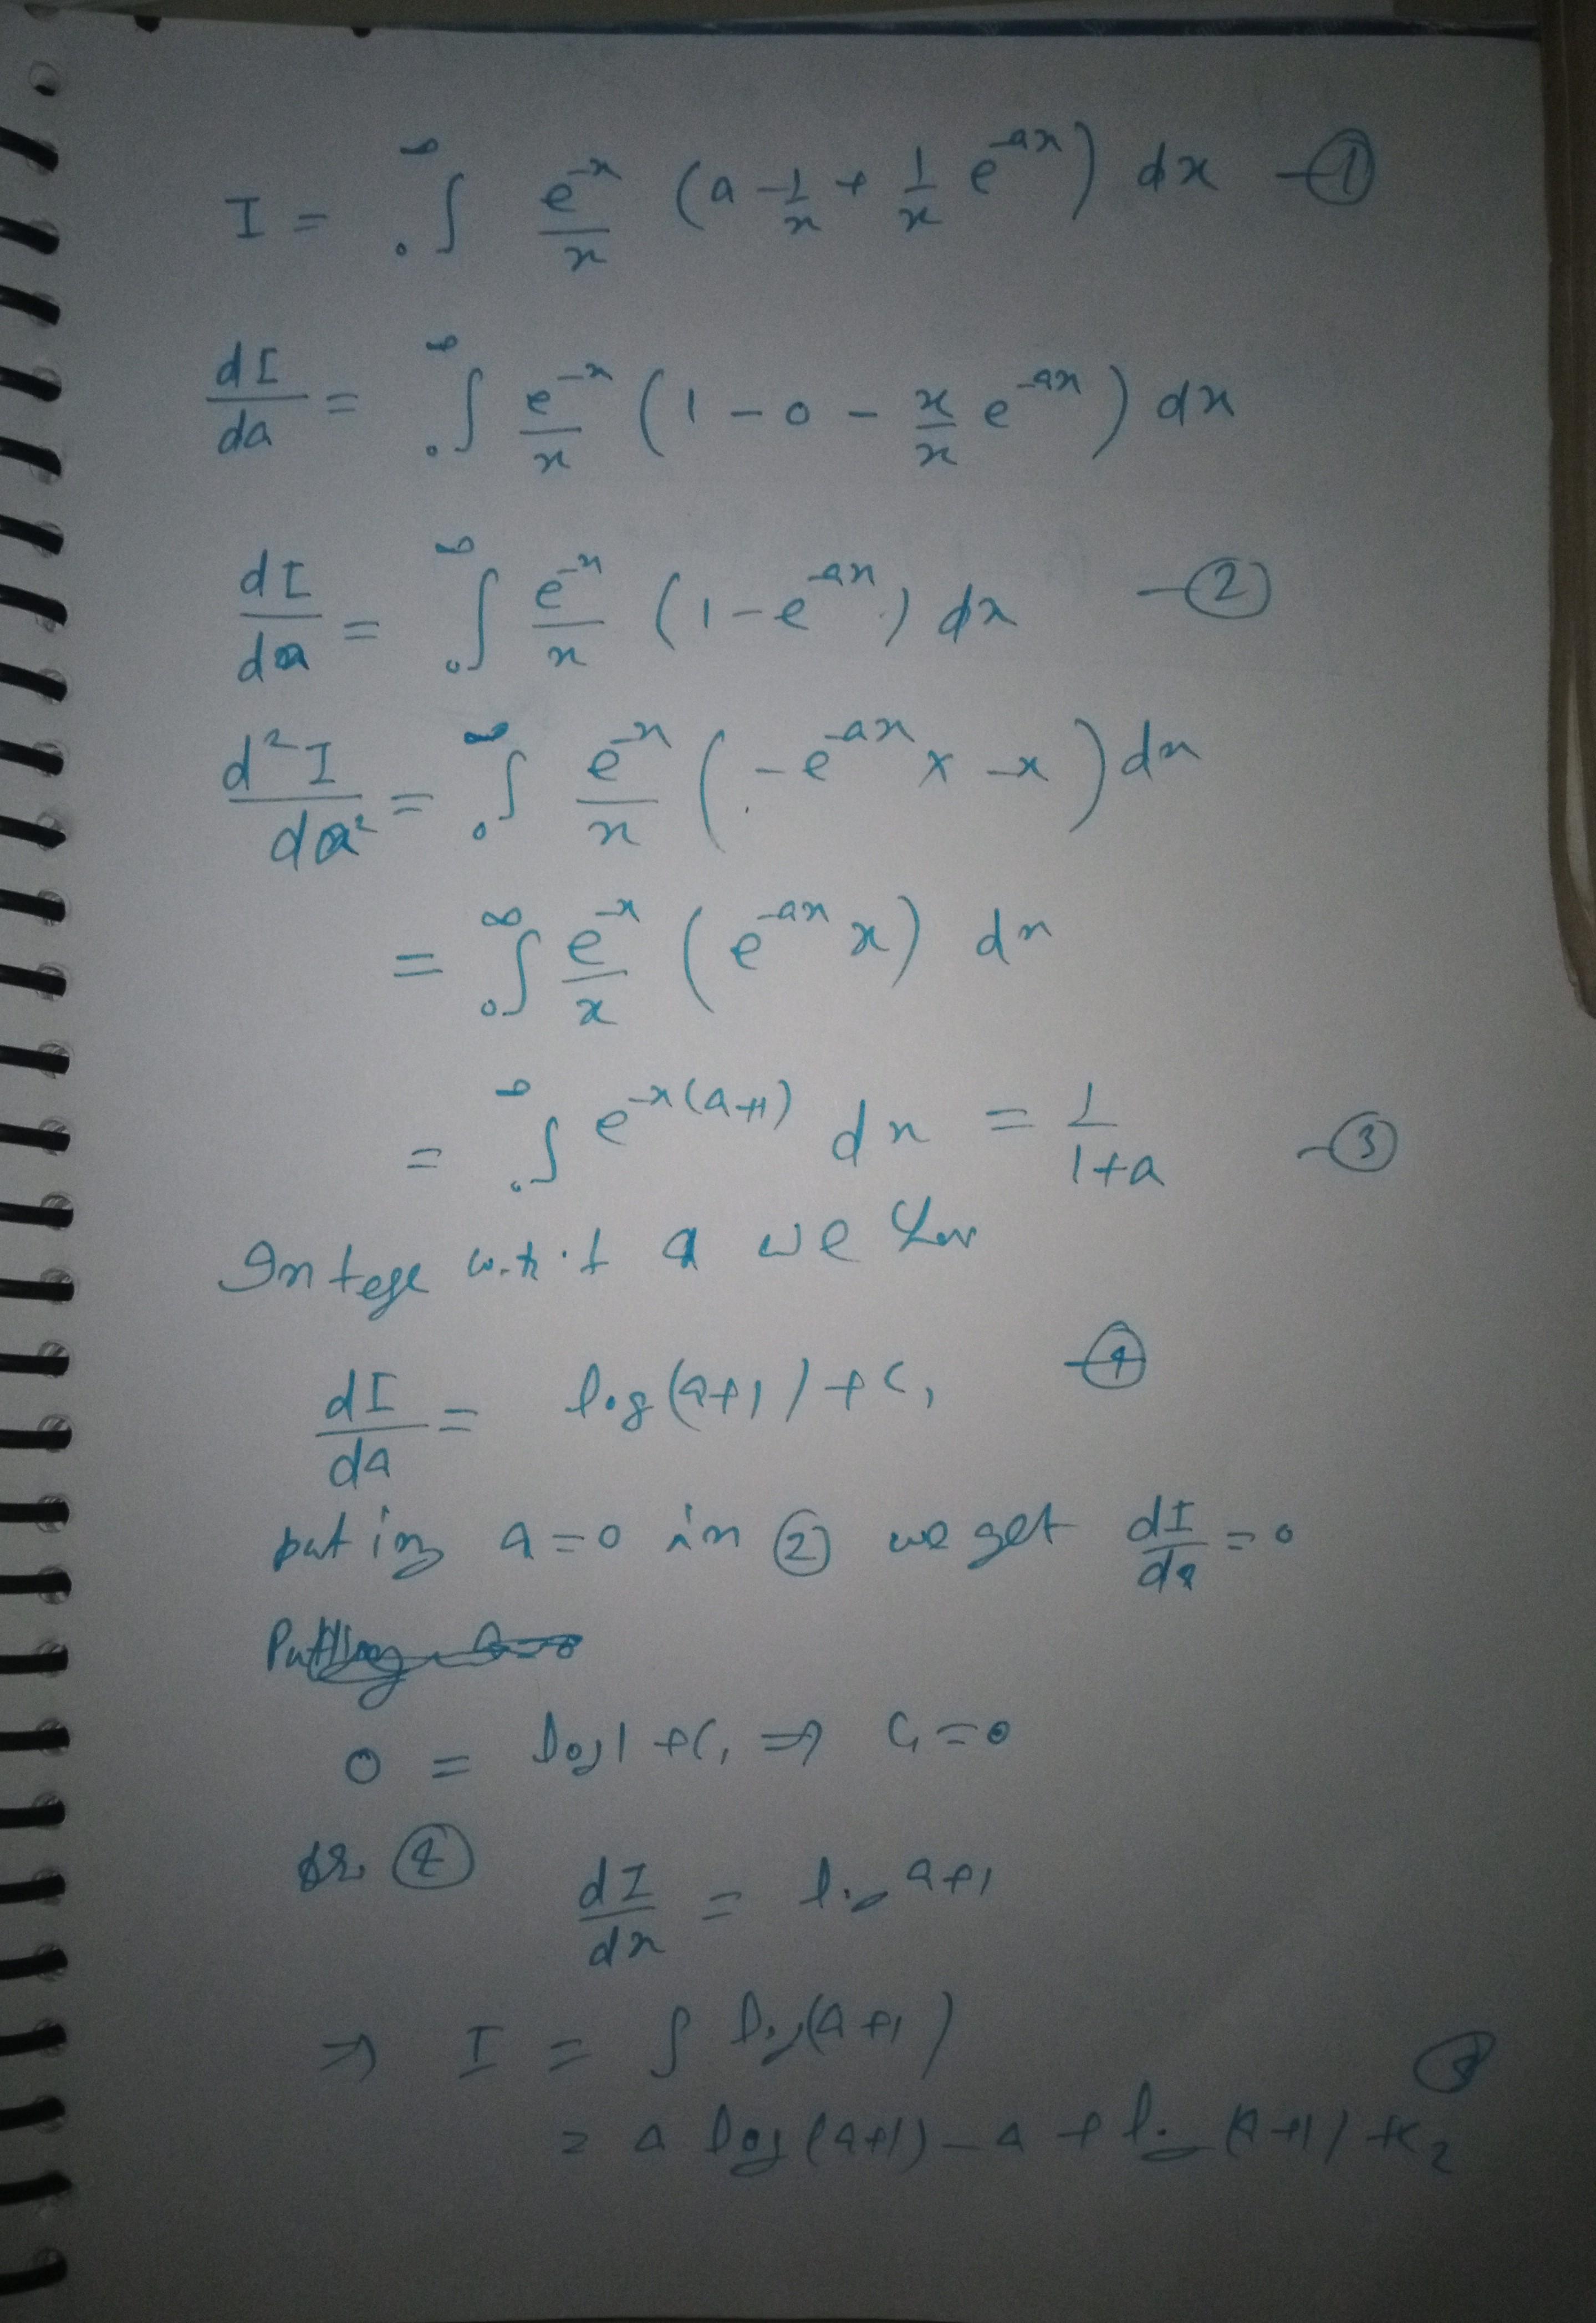 I = ∫₀^∞ e^{-x}/x (a - 1/x + 1/x e^{-ax}) dx —①
dI/da = ∫₀^∞ e^{-x}/x (1 - 0 - x/x e^{-ax}) dx
dI/da = ∫₀^∞ e^{-x}/x (1 - e^{-ax}) dx —②
d²I/da² = ∫₀^∞ e^{-x}/x (-e^{-ax} × -x) dx
= ∫₀^∞ e^{-x}/x (e^{-ax} x) dx
= ∫₀^∞ e^{-x(a+1)} dx = 1/(1+a) —③
w.r.t a we
dI/da = log(a+1) + C₁ —④
puting a=0 in ② we get dI/da = 0
0 = log1 + C₁ ⇒ C₁ = 0
④ dI/dx = log a+1
⇒ I = ∫ log(a+1)
= a log(a+1) - a + log(a+1) + C₂ ⑤